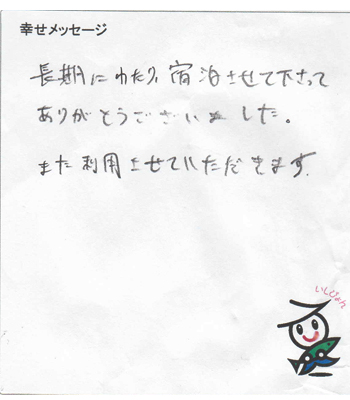 幸せメッセージ
長期にわたり、宿泊させて下さって
ありがとうございました。
また利用させていただきます。
いしぴょん